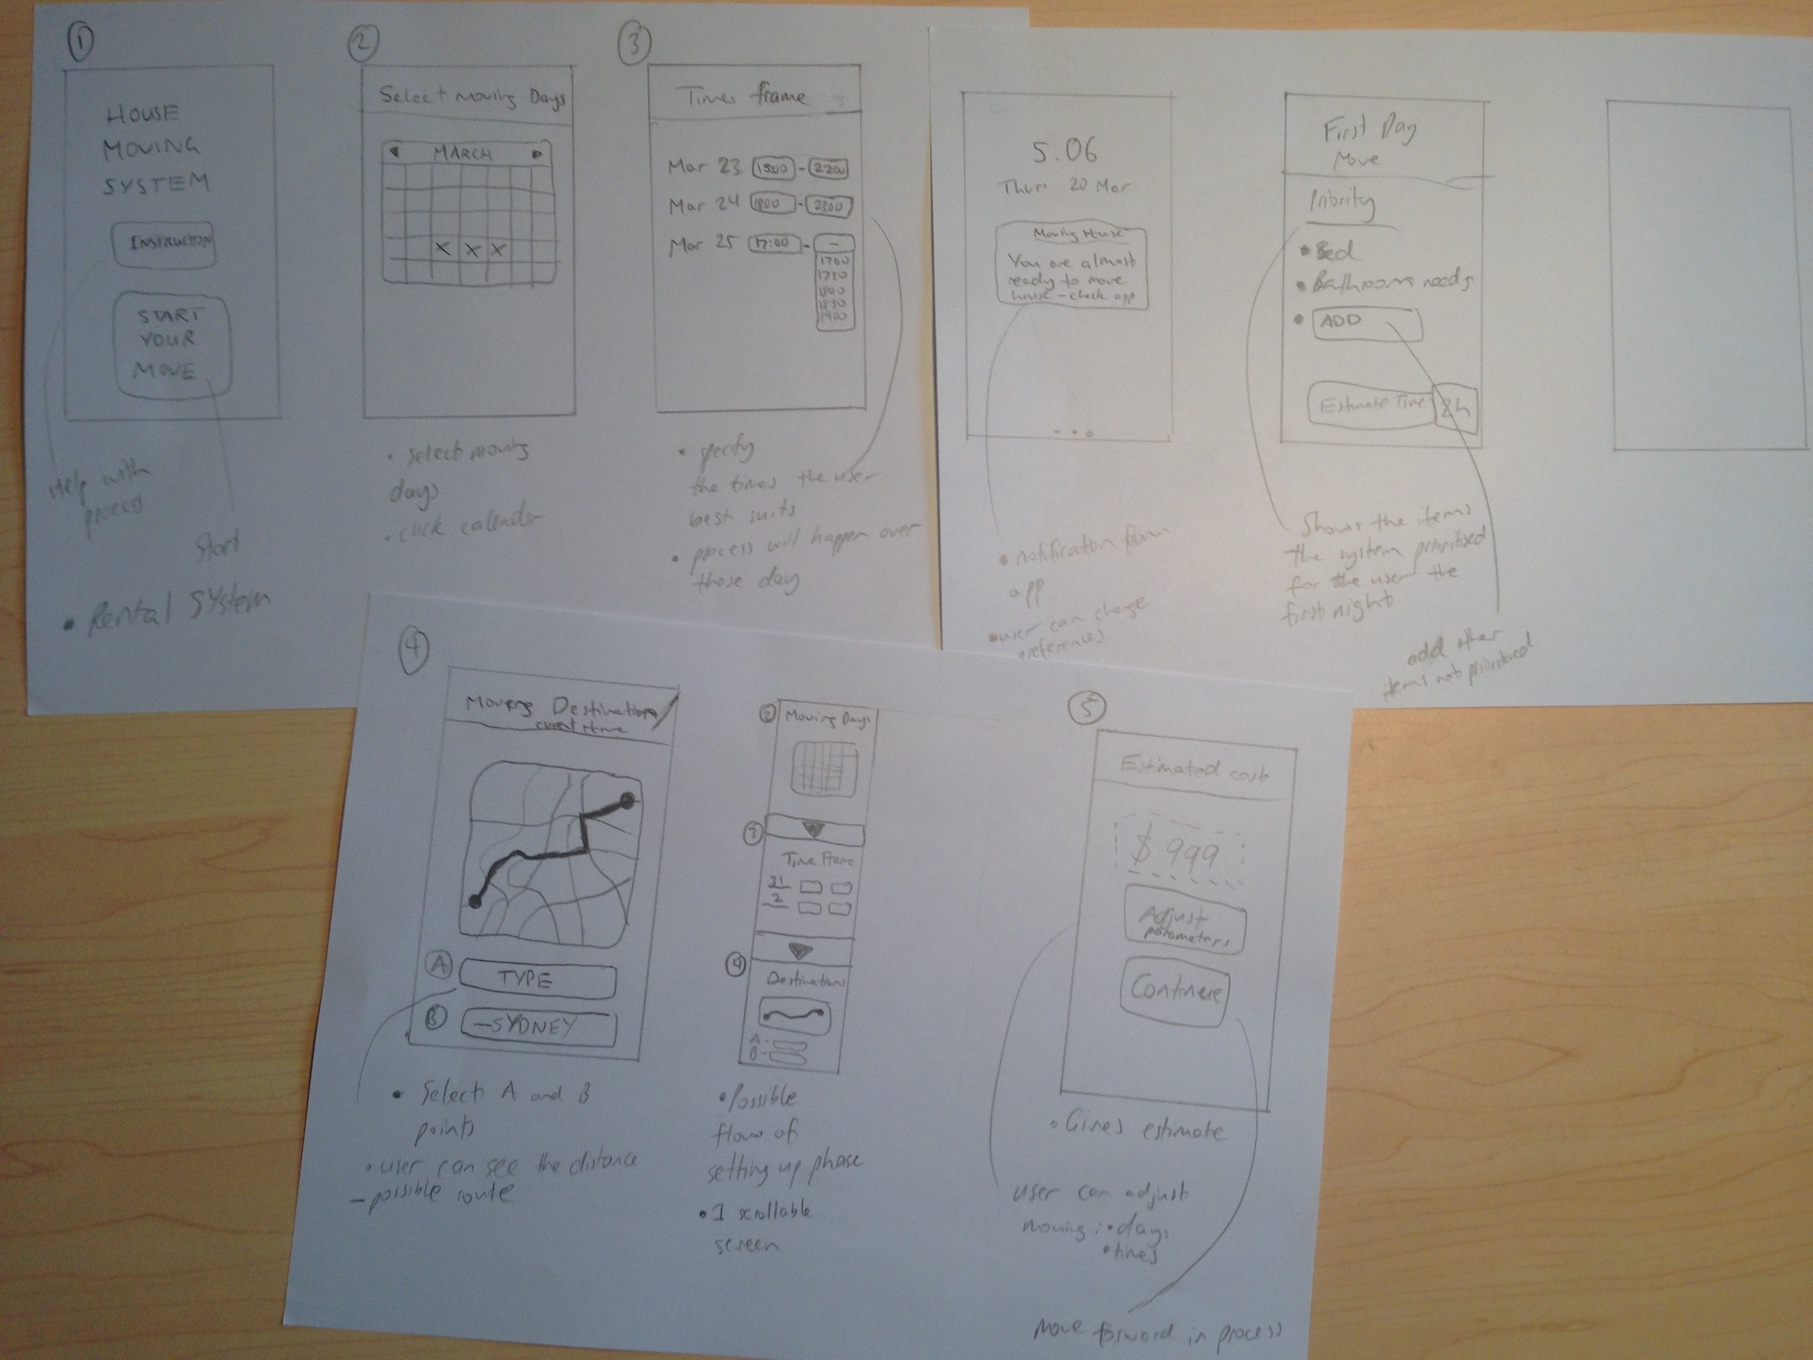 1
HOUSE
MOVING
SYSTEM
INSTRUCTION
START
YOUR
MOVE
Help with
process
Start
• Rental System
2
Select Moving Days
MARCH
x x x
• select moving
days
• click calender
3
Times frame
Mar 23 1500 - 2200
Mar 24 1800 - 2200
Mar 25 17:00 - —
1700
1730
1800
1830
1900
• specify
the times the user
best suits
• process will happen over
these day
5.06
Thur 20 Mar
Moving House
You are almost
ready to move
house - check app
• notification from
app
• user can change
preferences
First Day
Move
Priority
• Bed
• Bathrooms needs
• ADD
Estimate Time 2h
Shows the items
the system prioritised
for the user the
first night
add other
items not prioritised
4
Moving Destination/
current Home
A TYPE
B —SYDNEY
• Select A and B
points
• user can see the distance
— possible route
2 Moving Days
3
Time Frame
2
4
Destination
A -
B -
• Possible
flow of
setting up phase
• 1 scrollable
screen
5
Estimated cost
$ 999
Adjust
parameters
Continue
• Gives estimate
user can adjust
moving: • days
• times
move forward in process